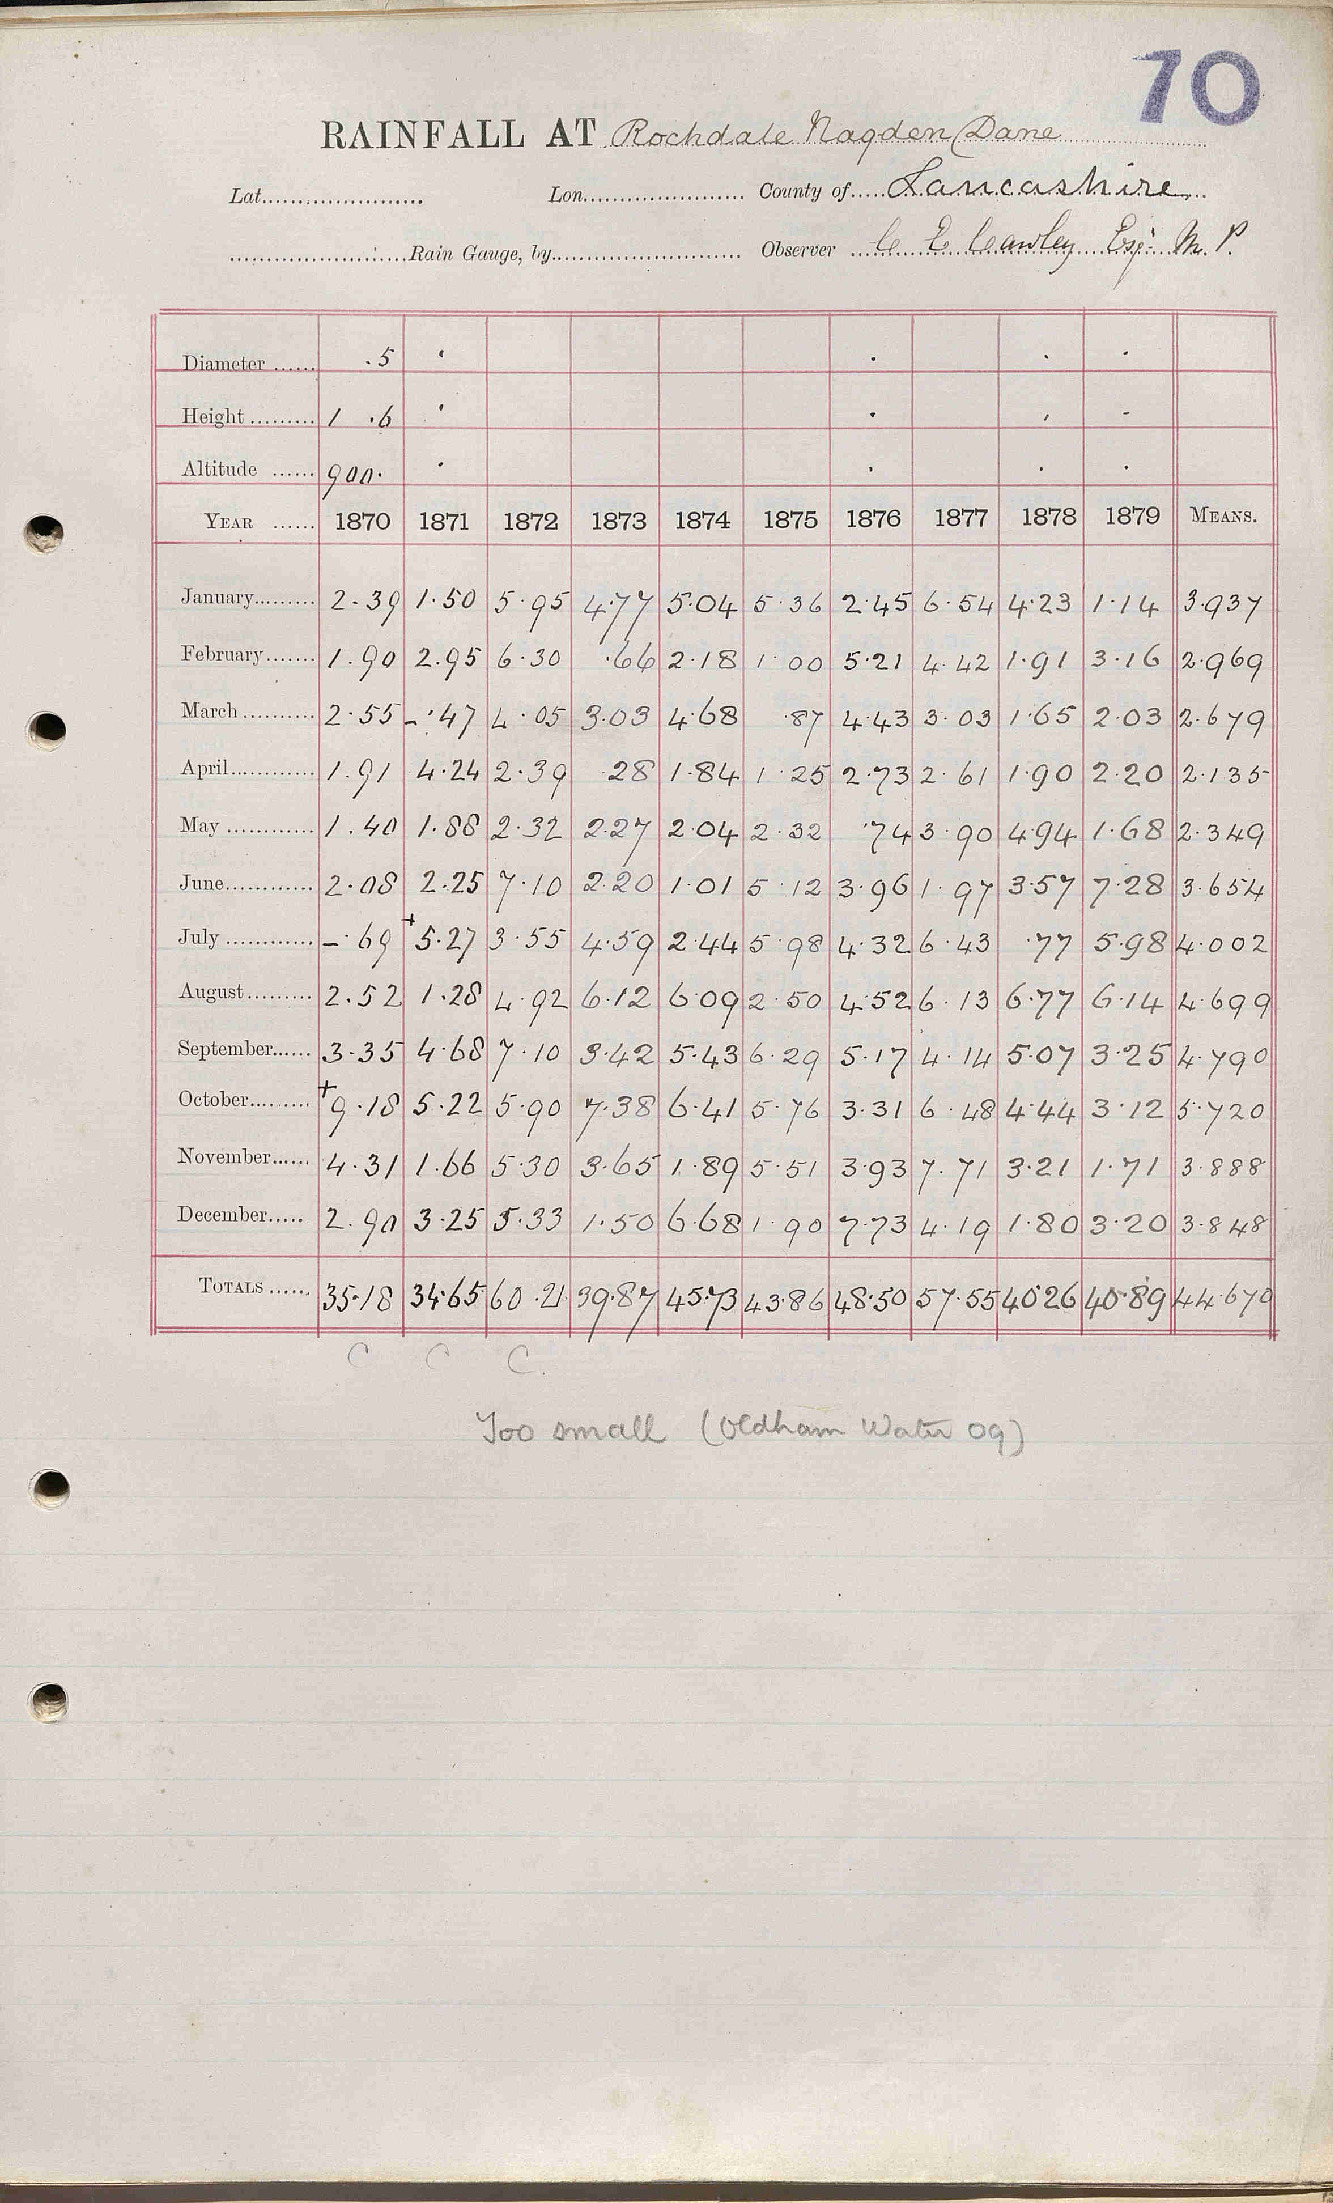 70
RAINFALL AT Rochdale Nagden Dane
Lat. Lon. County of Lancashire
Rain Gauge, by Observer C E Cawley Esq. M. P.
Diameter .5
Height 1 .6
Altitude 900.
YEAR 1870 1871 1872 1873 1874 1875 1876 1877 1878 1879 MEANS.
January 2.39 1.50 5.95 4.77 5.04 5.36 2.45 6.54 4.23 1.14 3.937
February 1.90 2.95 6.30 .66 2.18 1.00 5.21 4.42 1.91 3.16 2.969
March 2.55 -.47 4.05 3.03 4.68 .87 4.43 3.03 1.65 2.03 2.679
April 1.91 4.24 2.39 .28 1.84 1.25 2.73 2.61 1.90 2.20 2.135
May 1.40 1.88 2.32 2.27 2.04 2.32 .74 3.90 4.94 1.68 2.349
June 2.08 2.25 7.10 2.20 1.01 5.12 3.96 1.97 3.57 7.28 3.654
July -.69 +5.27 3.55 4.59 2.44 5.98 4.32 6.43 .77 5.98 4.002
August 2.52 1.28 4.92 6.12 6.09 2.50 4.52 6.13 6.77 6.14 4.699
September 3.35 4.68 7.10 3.42 5.43 6.29 5.17 4.14 5.07 3.25 4.790
October +9.18 5.22 5.90 7.38 6.41 5.76 3.31 6.48 4.44 3.12 5.720
November 4.31 1.66 5.30 3.65 1.89 5.51 3.93 7.71 3.21 1.71 3.888
December 2.90 3.25 5.33 1.50 6.68 1.90 7.73 4.19 1.80 3.20 3.848
TOTALS 35.18 34.65 60.21 39.87 45.73 43.86 48.50 57.55 40.26 40.89 44.670
C C C.
Too small (Oldham Water 09)